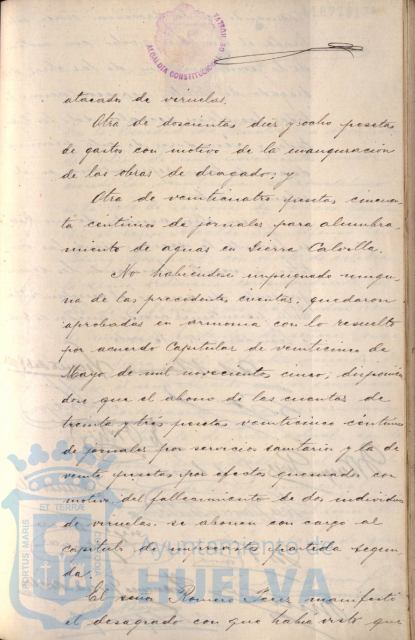 ALCALDIA CONSTITUCIONAL DE
atacados de viruelas.
Otra de doscientas diez y ocho pesetas
de gastos con motivo de la inauguración
de las obras de dragado; y
Otra de veinticuatro pesetas cincuen-
ta centimos de jornales para alumbra-
miento de aguas en Sierra Calvilla.
No habiendose impugnado ningu-
na de las precedentes cuentas, quedaron
aprobadas en armonia con lo resuelto
por acuerdo Capitular de veinticinco de
Mayo de mil novecientos cinco, disponien
dose que el abono de las cuentas de
treinta y tres pesetas veinticinco céntimos
de jornales por servicios sanitarios y la de
veinte pesetas por efectos quemados con
motivo del fallecimiento de dos individuos
de viruelas se abonen con cargo al
capitulo de imprevistos partida segun-
da.
El señor Romero manifestó
el desagrado con que habia visto que
PORTUS MARIS
ET TERRÆ
Ayuntamiento de
HUELVA